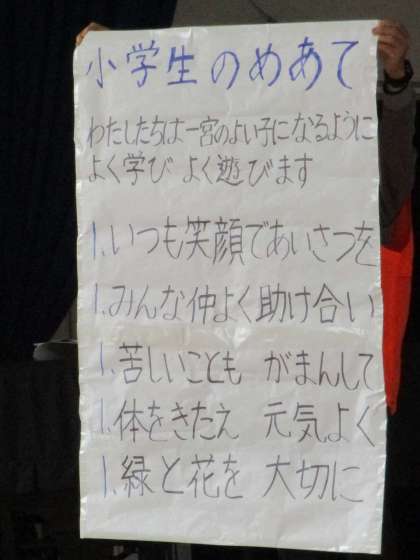 小学生のめあて
わたしたちは一宮のよい子になるように
よく学び よく遊びます
1.いつも笑顔であいさつを
1.みんな仲よく助け合い
1.苦しいことも がまんして
1.体をきたえ 元気よく
1.緑と花を 大切に